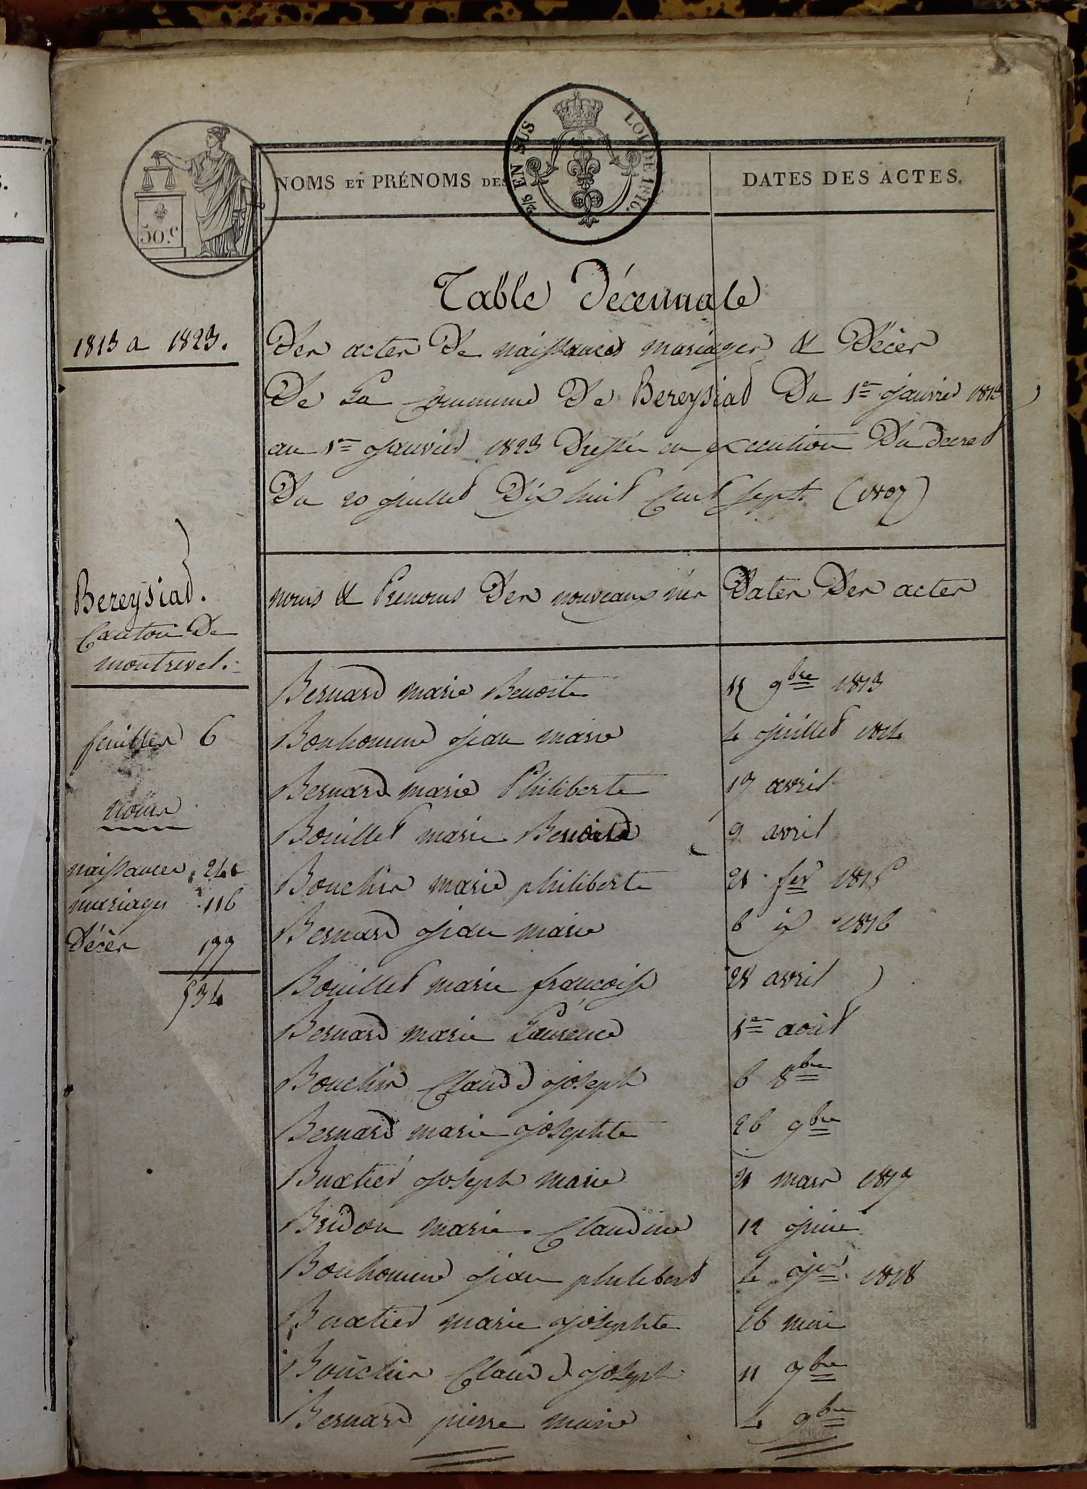 50.c
5/8 EN SUS
LOI DE 1816.
NOMS ET PRÉNOMS DES
DATES DES ACTES.
Table Décennale
1813 a 1823.
Des actes De naissances mariages & Décès
De La Commune De Bereysiad Du 1er janvier 1813
au 1er janvier 1823 Dressée en exécution Du decret
Du 20 juillet Dix huit Cent Sept (1807)
Bereysiad.
Canton De
montrevel.
noms & Prenoms Des nouveaux nés
Dates Des actes
feuilles 6
noms
naissances 241
mariages 116
Décès 177
534
Bernard marie Benoite 11 9bre 1813
Bonhomme jean marie 4 juillet 1814
Bernard marie Philiberte 17 avril
Bouillet marie Benoite 9 avril
Bouchir marie philiberte 21 fer 1815
Bernard jean marie 6 id 1816
Bouillet marie françoise 28 avril
Bernard marie Laurence 1er août
Bouchir Claude joseph 6 8bre
Bernard marie josephte 26 9bre
Buatier joseph marie 21 mars 1817
Bridon marie Claudine 12 juin
Bonhomme jean philibert 4 jer 1818
Buatier marie josephte 26 mai
Bouchir Claude joseph 11 7bre
Bernard pierre marie 4 9bre